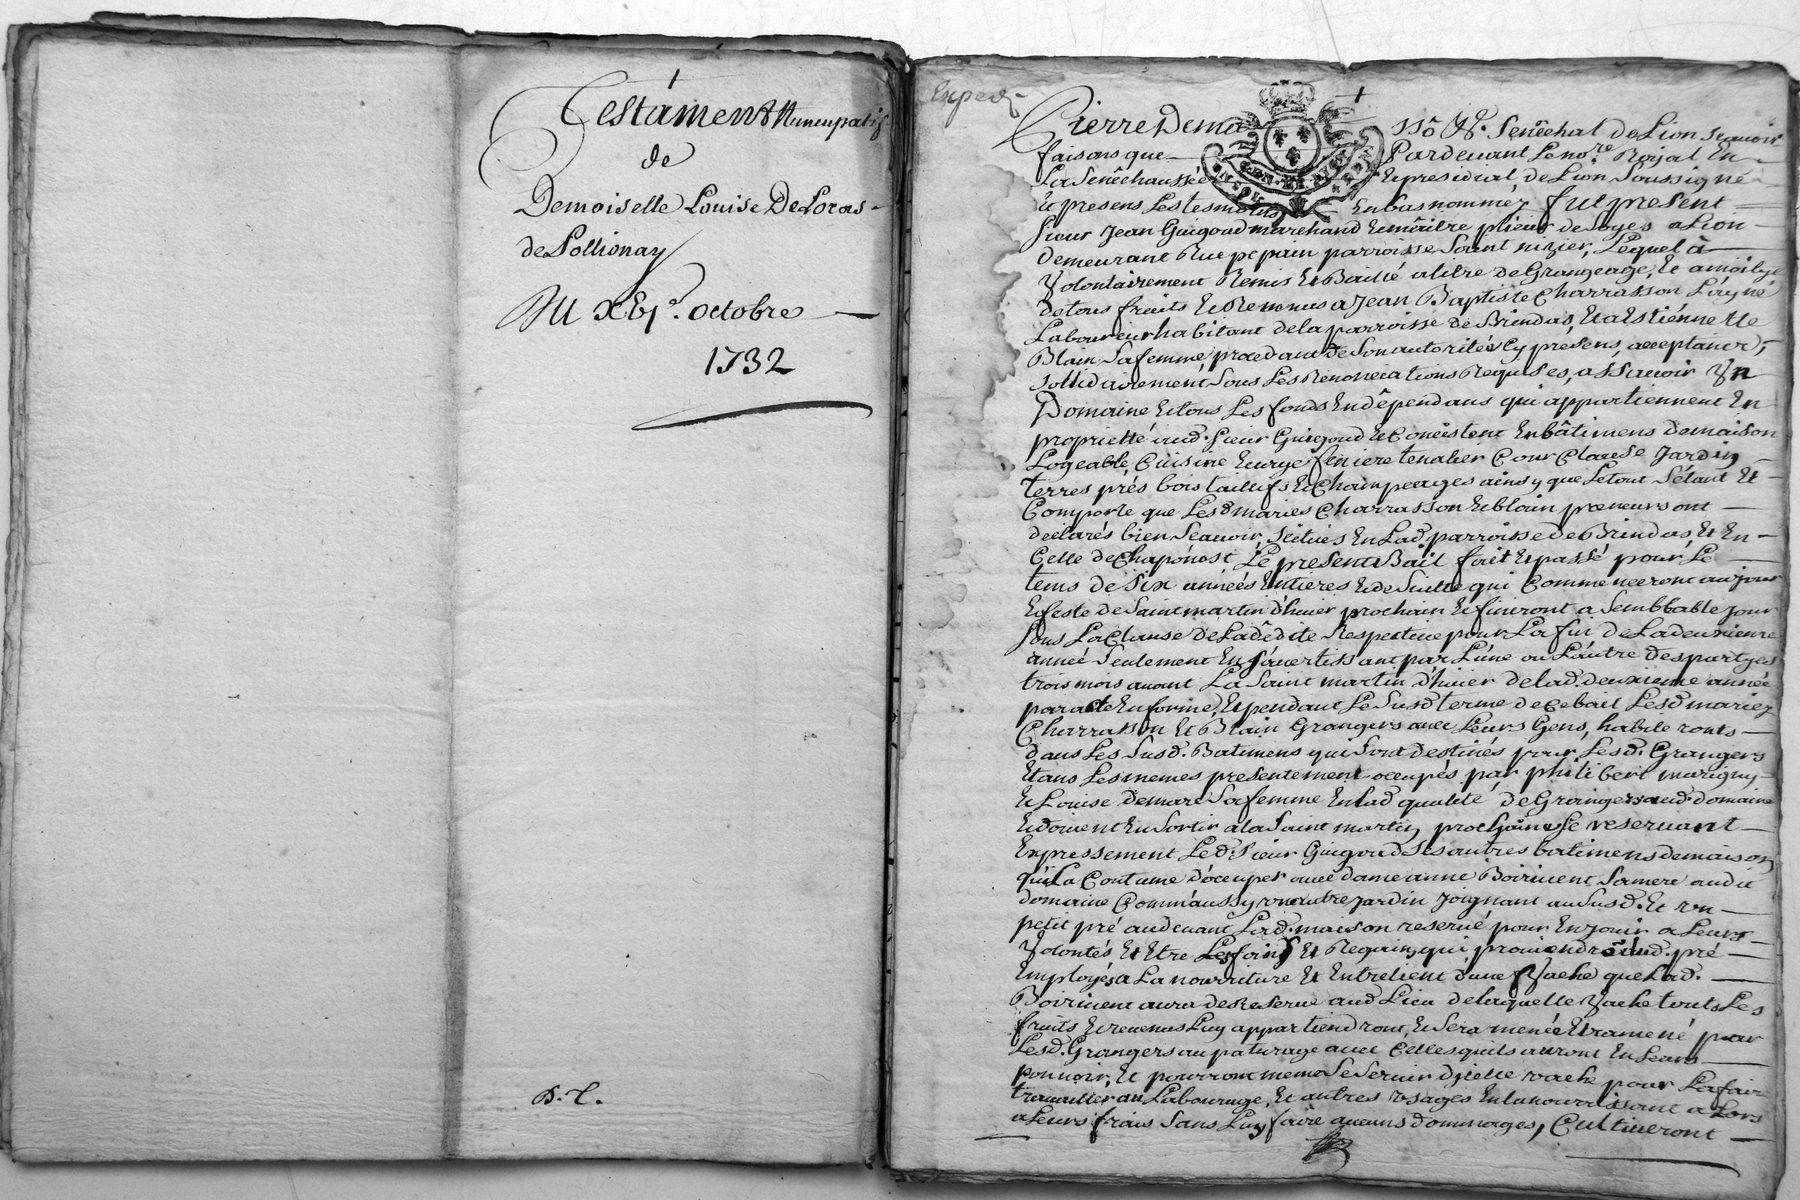 Testament Nuncupatif
de
Demoiselle Louise DeLoras
de Pollionay
Du xbj.e octobre
1732
D. C.
Exped.
Pierre Dema ssô Gr. Senêchal de Lion scavoir
faisons que Pardevant Le nore. Roijal En
La Senêchaussée Et presidial de Lion Soussigné
Et presens Les tesmoins Enbas nommez fut present
sieur Jean Guigoud marchand Et maître plieur de soyes a Lion
demeurant Rue pepain parroisse Saint nizier, Lequel à
Volontairement Remis Et Baillé a titre de Grangeage, Et a moitye
de tous fruits Et Revenus a Jean Baptiste Charrasson Layné
Laboureur habitant de la parroisse de Brindas, Et a Estiennette
Blain Sa femme, procedant de Son autorité Cy presens, acceptants,
sollidairement, sous Les Renonciations Requises, assavoir Un
Domaine Et tous Les fonds En dépendans qui appartiennent En
proprietté aud. sieur Guigoud Et Concistent En bâtimens de maison
Logeable, Cuisine Ecurye feniere tenalier Cour Close Jardin
terres prés bois taillifs Et Champeages ainsy que Le tout S'étant Et
Comporte que Lesd. mariés Charrasson Et blain preneurs ont
déclarés bien Scavoir, scitués En Lad. parroisse de Brindas, Et En
Celle de Chaponost Le present Bail fait Et passé pour Le
tems de Six années Entieres Et de Suitte qui Commenceront au jour
Et feste de Saint martin d'hiver prochain Et finiront a Semblable jour
sous La Clause de La dêdite Respective pour La fin de La deuxieme
année Seulement En S'avertissant par L'une ou L'autre des partyes
trois mois avant La Saint martin d'hiver de lad. deuxieme année
par acte En forme, Et pendant Le Susd. terme de Ce bail Lesd. mariez
Charrasson Et Blain Grangers avec Leurs Gens, habiteronts
dans Les Susd. Batimens qui sont destinés pour Lesd. Grangers
Et ans Les memes presentement occupés par philibert marigny
Et Louise demare Sa femme En lad. qualité de Grangers aud. domaine
Et doivent En Sortir a la Saint martin prochaine Se reservant
Expressement Led. sieur Guigoud Ses autres batimens de maison
qu'il a Coutume d'occuper avec dame anne Boirivent Sa mere audit
domaine Comm'aussy un autre jardin joignant au Susd. Et un
petit pré au devant Lad. maison reservé pour En jouir a Leurs
Volontés Et Etre Les foins Et Regains qui proviendront dud. pré
Employés a La nourriture Et Entretient d'une Vache que Lad.
Boirivent aura de Reserve aud. Lieu de laquelle Vache touts Les
fruits Et revenus Luy appartiendront, Et Sera menée Et ramené par
Lesd. Grangers au paturage avec Celles quils auront En Leurs
pouvoir, Et pourront meme Se Servir d'jcelle vache pour La faire
travailler au Labourage, Et autres usages En la nourrissant alors
a Leurs frais Sans Luy faire aucuns dommages, Cultiveront